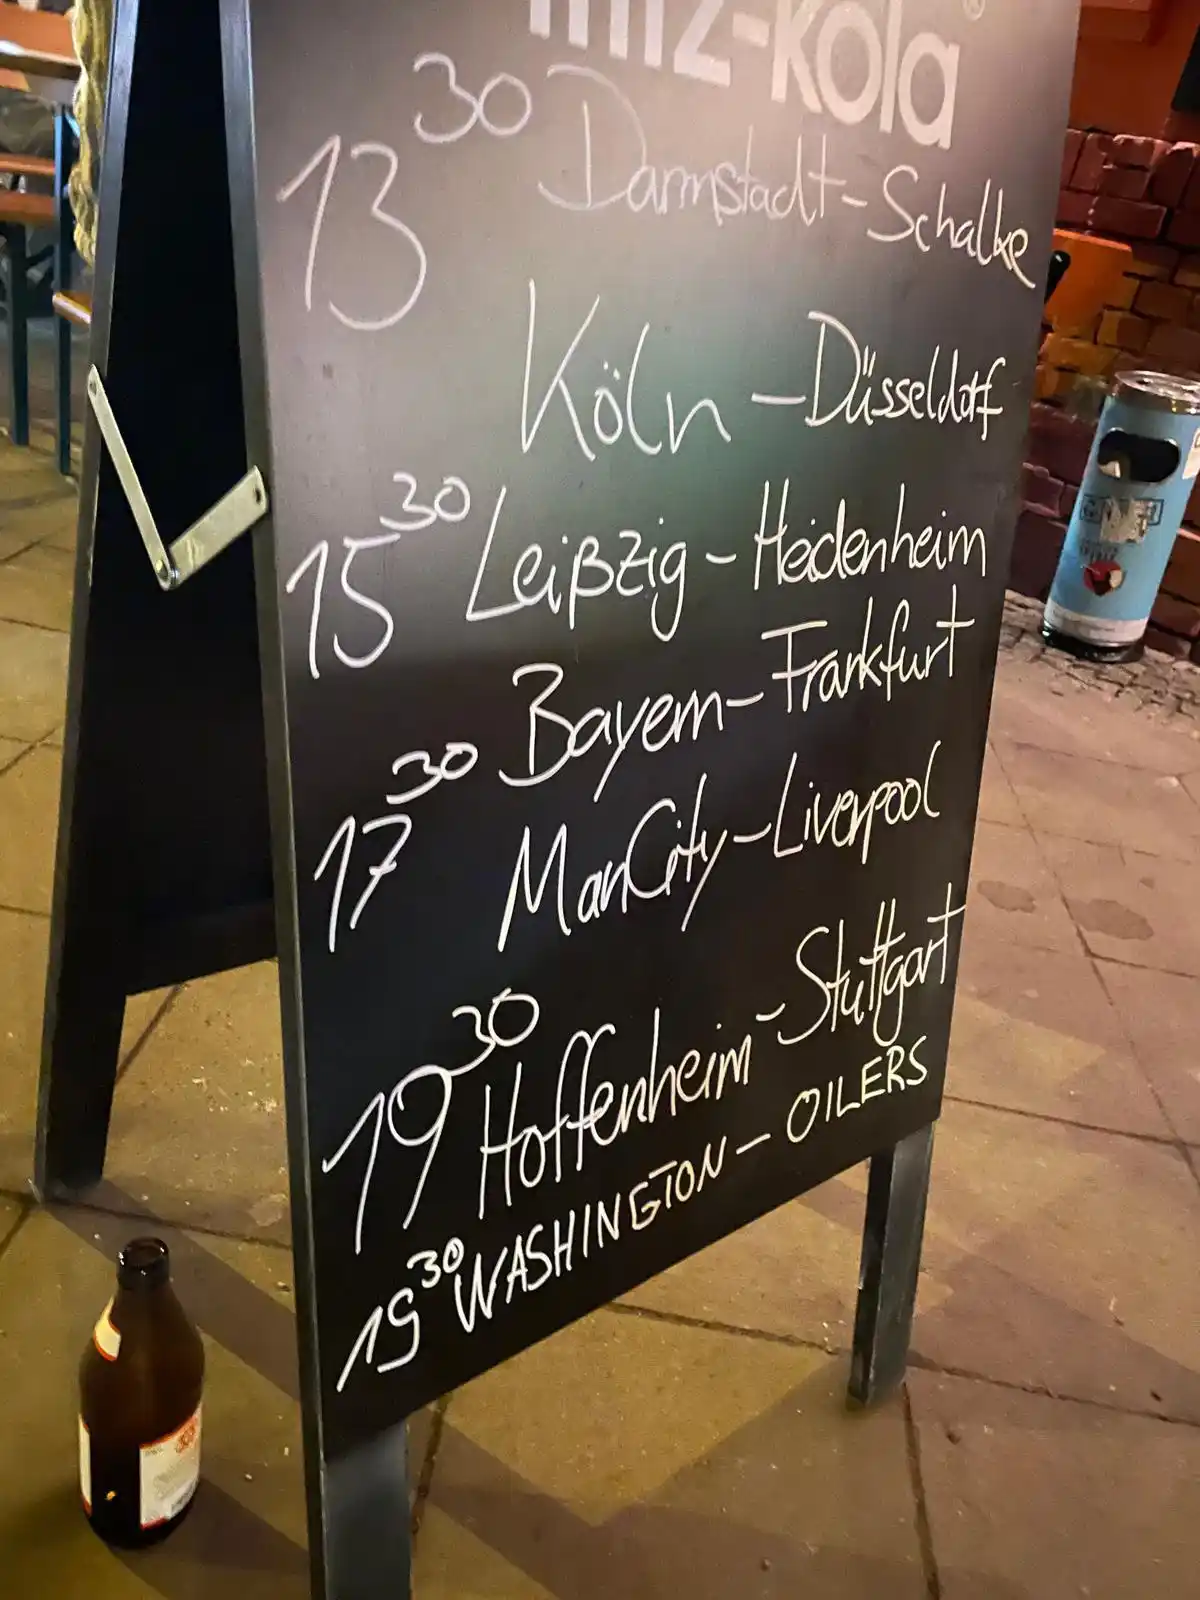 fritz-kola®
13 30 Darmstadt-Schalke
Köln-Düsseldorf
15 30 Leißzig-Heidenheim
Bayern-Frankfurt
17 30 ManCity-Liverpool
19 30 Hoffenheim-Stuttgart
19 30 WASHINGTON-OILERS